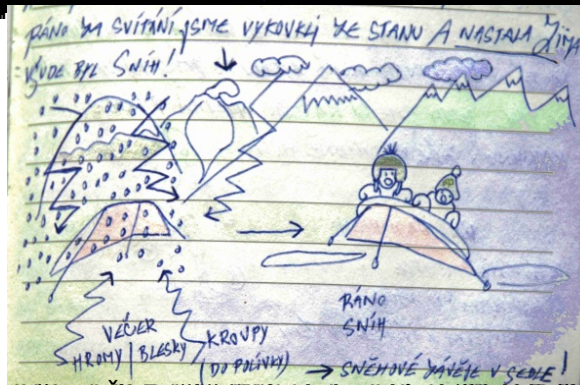 RÁNO ZA SVÍTÁNÍ JSME VYKOUKLI ZE STANU A NASTALA ZIMA
VŠUDE BYL SNÍH!
VEČER
HROMY / BLESKY
KROUPY
(DO POLÍVKY)
RÁNO
SNÍH
→ SNĚHOVÉ ZÁVĚJE V SEDLE!